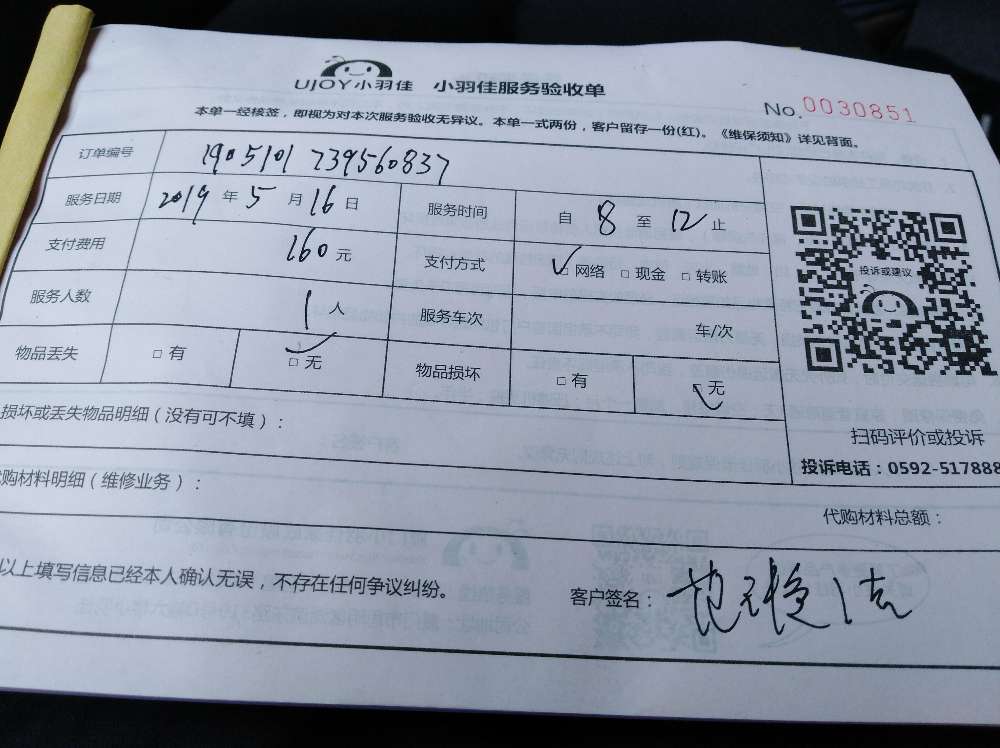 UJOY小羽佳 小羽佳服务验收单
No.0030851
本单一经核签，即视为对本次服务验收无异议。本单一式两份，客户留存一份(红)。《维保须知》详见背面。
订单编号 1905101739560837
服务日期 2019 年 5 月 16 日 服务时间 自 8 至 12 止
支付费用 160 元 支付方式 ☑网络 □现金 □转账
服务人数 1 人 服务车次 车/次
物品丢失 □有 ☑无 物品损坏 □有 ☑无
投诉或建议
扫码评价或投诉
投诉电话：0592-517888
损坏或丢失物品明细（没有可不填）：
购材料明细（维修业务）：
代购材料总额：
以上填写信息已经本人确认无误，不存在任何争议纠纷。
客户签名：